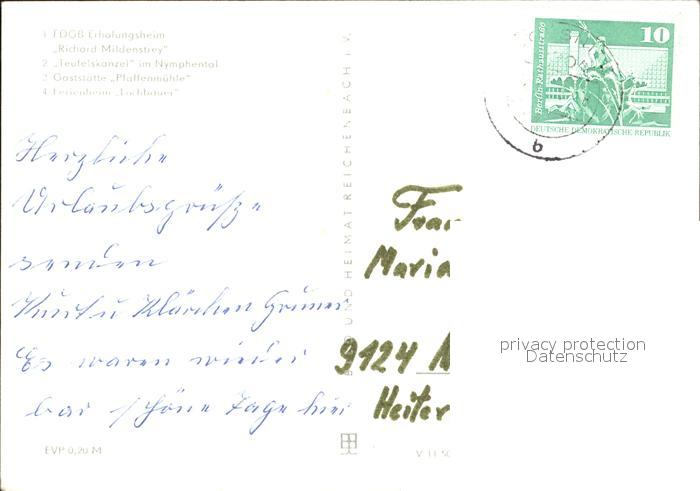 1 FDGB Erholungsheim
„Richard Mildenstrey“
2 „Teufelskanzel“ im Nymphental
3 Gaststätte „Pfaffenmühle“
4 Ferienheim „Lochbauer“
Herzliche
Urlaubsgrüße
senden
Kurt u Klärchen Gruner
Es waren wieder
bar schöne Tage hier
EVP 0,20 M
BILD UND HEIMAT REICHENBACH i. V.
V 11 50
Berlin-Rathausstraße
10
DEUTSCHE DEMOKRATISCHE REPUBLIK
b
Frau
Maria
9124 N
Heiter
privacy protection
Datenschutz